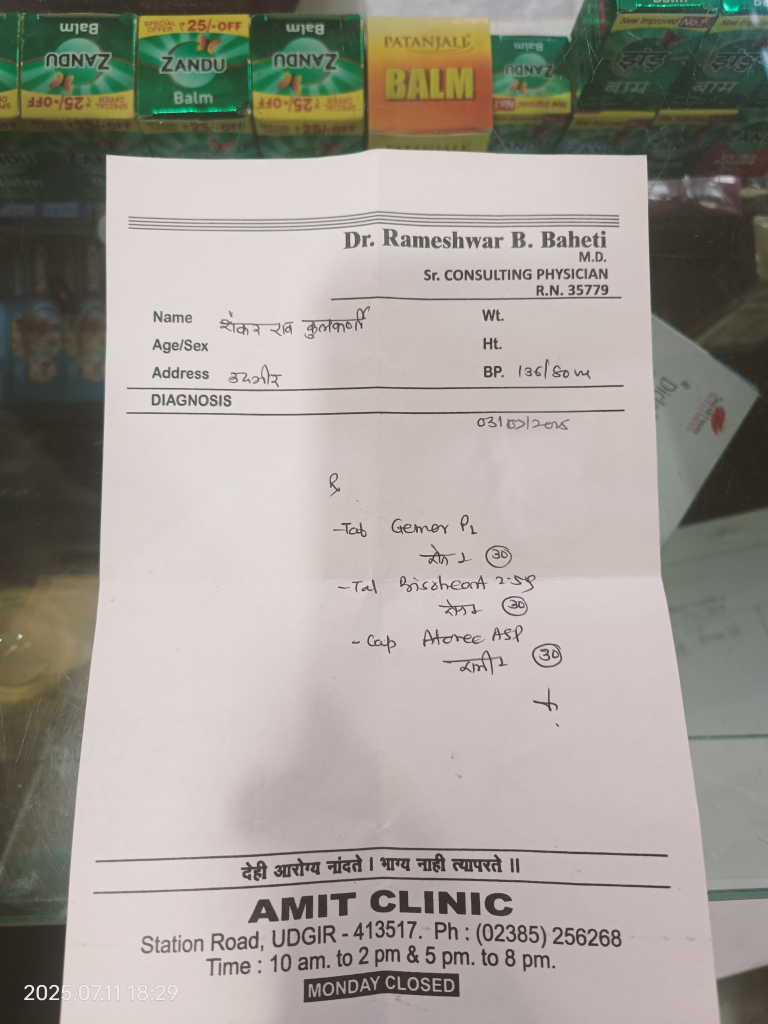 SPECIAL OFFER ₹25/-OFF
Balm
ZANDU
ZANDU
Balm
Balm
ZANDU
PATANJALI
BALM
Balm
ZANDU
New Improved No.1
झंडु
बाम
झंडु
बाम
Dr. Rameshwar B. Baheti
M.D.
Sr. CONSULTING PHYSICIAN
R.N. 35779
Name शंकर राव कुलकर्णी Wt.
Age/Sex Ht.
Address उदगीर BP. 136/80
DIAGNOSIS
℞
-Tab Gemer P1
30
-Tab Bisoheart 2.5
30
-Cap Atorec ASP
रात्री 1 30
देही आरोग्य नांदते । भाग्य नाही त्यापरते ॥
AMIT CLINIC
Station Road, UDGIR - 413517. Ph : (02385) 256268
Time : 10 am. to 2 pm & 5 pm. to 8 pm.
MONDAY CLOSED
2025.07.11 18:29